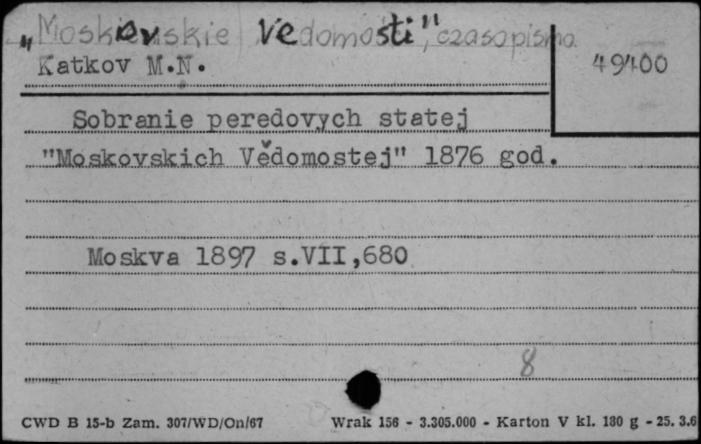 „Moskovskie Vedomosti", czasopismo
Katkov M.N.
49400
Sobranie peredovych statej
"Moskovskich Vědomostej" 1876 god.
Moskva 1897 s.VII,680
8
CWD B 15-b Zam. 307/WD/On/67 Wrak 156 - 3.305.000 - Karton V kl. 180 g - 25. 3.6